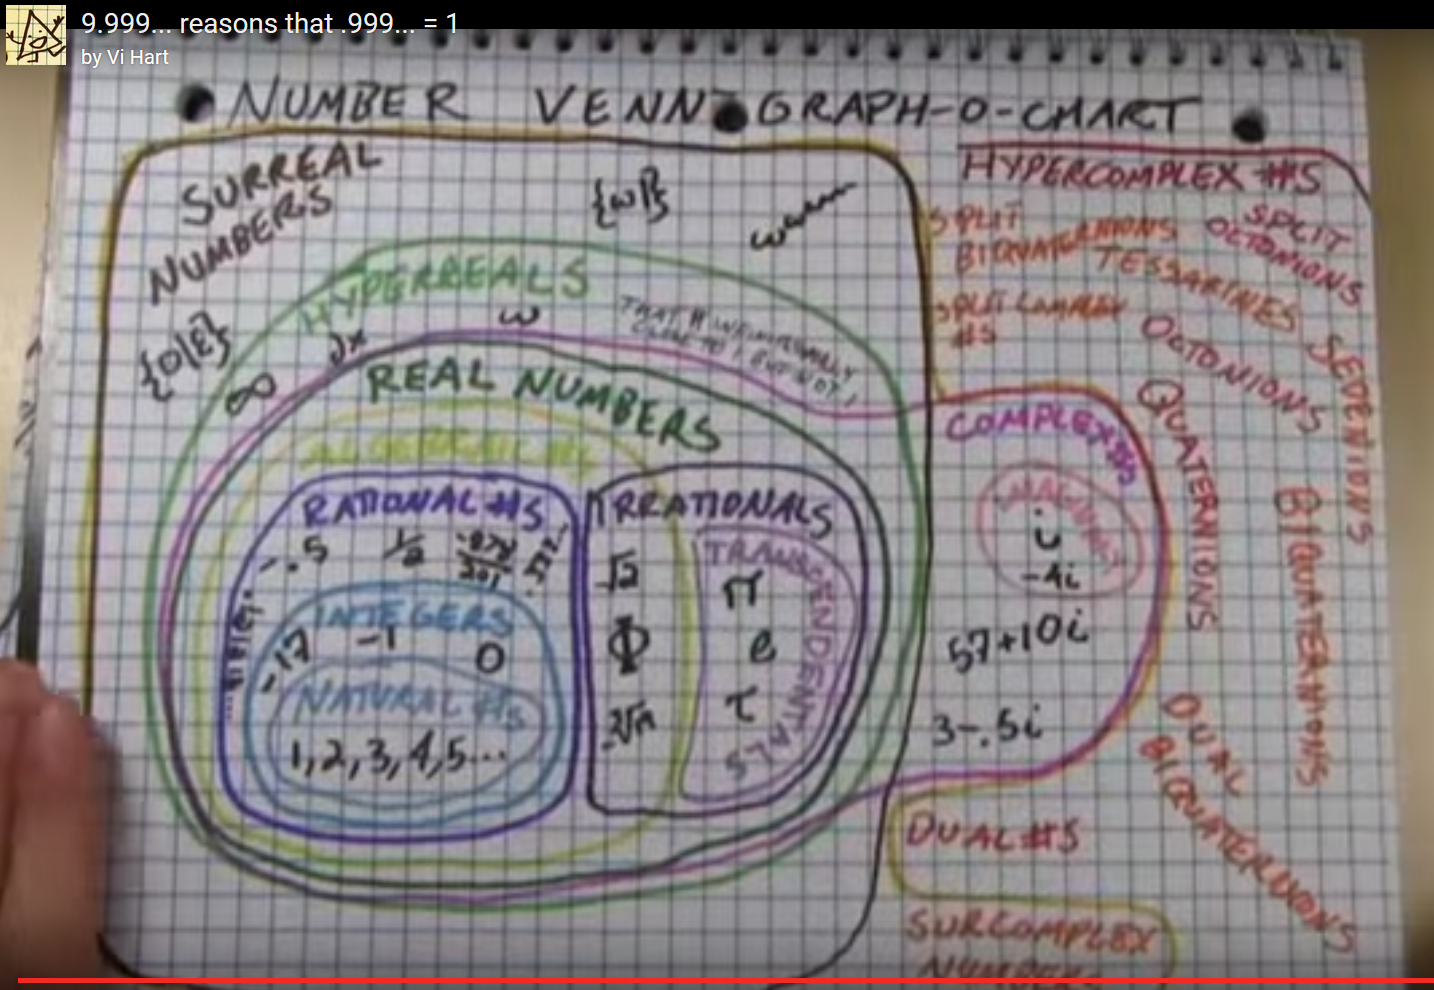 9.999... reasons that .999... = 1
by Vi Hart
NUMBER VENN GRAPH-O-CHART
SURREAL
NUMBERS
{ω|}
HYPERCOMPLEX #S
SPLIT
BIQUATERNIONS
SPLIT
OCTONIONS
TESSARINES
SPLIT COMPLEX
#S
OCTONIONS
SEDENIONS
QUATERNIONS
BIQUATERNIONS
DUAL
BIQUATERNIONS
HYPERREALS
{0|ε}
∞
dx
ω
THAT # INFINITESIMALLY
CLOSE TO 1 BUT NOT 1
REAL NUMBERS
ALGEBRAIC #S
RATIONAL #S
-.5 1/2
INTEGERS
-17 -1 0
NATURAL #S
1,2,3,4,5...
IRRATIONALS
√2
Φ
TRANSCENDENTALS
π
e
τ
COMPLEX #S
IMAGINARY
i
-4i
57+10i
3-.5i
DUAL #S
SURCOMPLEX
NUMBERS